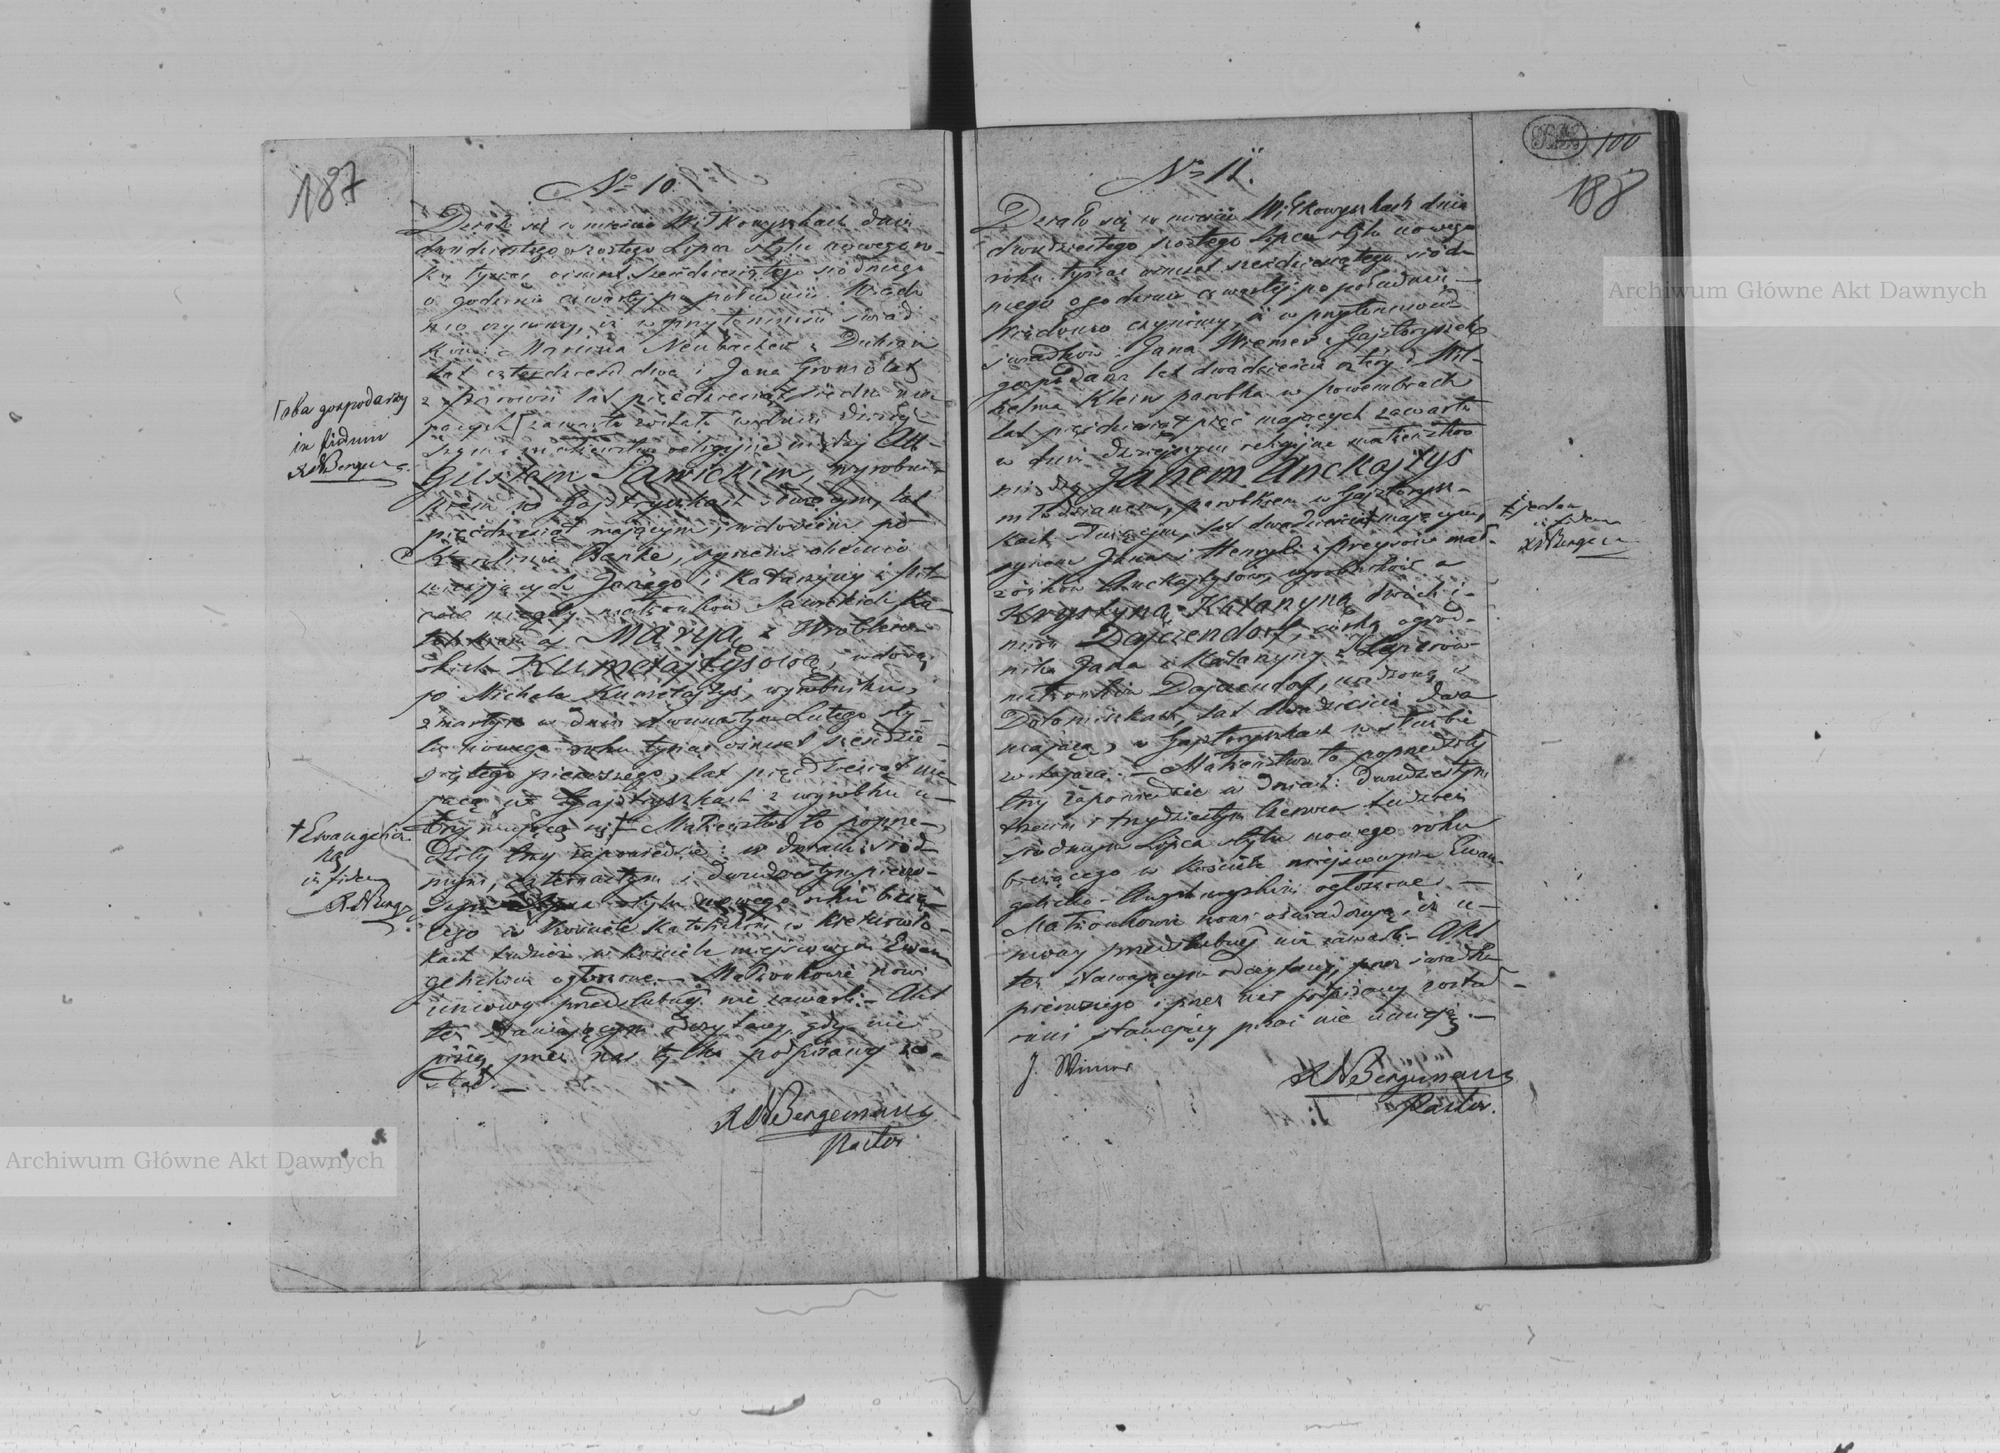 187
No 10.
Działo się w mieście Wiłkowyszkach dnia
dwudziestego szóstego Lipca stylu nowego ro-
ku tysiąc ośmset sześćdziesiątego siódmego
o godzinie czwartej po południu. Wiado-
mo czynimy, iż w przytomności świad-
ków: Marcina Neubacher z
lat czterdzieści dwa i Jana
z lat pięćdziesiąt siedm ma-
jących zawarte zostało w dniu dzisiej-
szym małżeństwo religijne między Au-
gustem Sawickim, wyrobni-
kiem w Gajstryszkach służącym, lat
pięćdziesiąt mającym, wdowcem po
Karolinie synem
Jana i Katarzyny z
niegdy małżonków Sawickich Ka-
tolikiem a Maryą z Wróblew-
skich Kumetajtysową, wdową
po Michale Kumetajtys, wyrobniku,
zmarłym w dniu Lutego sty-
lu nowego roku tysiąc ośmset sześćdzie-
siątego pierwszego, lat pięćdziesiąt ma-
jącą w Gajstryszkach z wyrobku u-
trzymującą się — Małżeństwo to poprze-
dziły trzy zapowiedzie: w dniach: siód-
mym, czternastym i dwudziestym pierw-
szym Lipca stylu nowego roku bieżą-
cego w kościele Katolickim w
tudzież w kościele miejscowym Ewan-
gelickim ogłoszone. — Małżonkowie nowi
umowy przedślubnej nie zawarli — Akt
ten stawającym odczytany, gdy nie
piszą, przez nas tylko podpisany zo-
stał. —
Bergemann
Pastor
oba gospodarzy
in fidem
Berge
+ Ewangelicz-
ką
in fidem
Berge
100
188
No 11.
Działo się w mieście Wiłkowyszkach dnia
dwudziestego szóstego Lipca stylu nowego
roku tysiąc ośmset sześćdziesiątego siód-
mego o godzinie czwartej po południu —
Wiadomo czynimy, iż w przytomności
świadków: Jana Wiemer z Gajstryszek
gospodarza lat dwadzieścia cztery i Wil-
helma Klein parobka w
lat pięćdziesiąt pięć mających zawarte
w dniu dzisiejszym religijne małżeństwo
między Janem Anckajtys
młodzianem, parobkiem w Gajstrysz-
kach służącym, lat dwadzieścia mającym,
synem Jana i Henryki z mał-
żonków Anckajtysów, wyrobników a
Krystyną Katarzyną dwóch i-
mion Dajczendorf, córką ogrod-
nika Jana i Katarzyny z
małżonków Dajczendorf, urodzoną w
lat dwadzieścia dwa
mającą, w Gajstryszkach w służbie
zostającą. — Małżeństwo to poprzedziły
trzy zapowiedzie w dniach: dwudziestym
trzecim i trzydziestym Czerwca tudzież
siódmym Lipca stylu nowego roku
bieżącego w kościele miejscowym Ewan-
gelicko-Augsburgskim ogłoszone. —
Małżonkowie nowi oświadczają, iż u-
mowy przedślubnej nie zawarli — Akt
ten stawającym odczytany, przez świadka
pierwszego i przez nas podpisany został —
inni stawający pisać nie umieją. —
J. Wiemer
Bergemann
Pastor.
+ jeden
in fidem
Berge
Archiwum Główne Akt Dawnych
Archiwum Główne Akt Dawnych